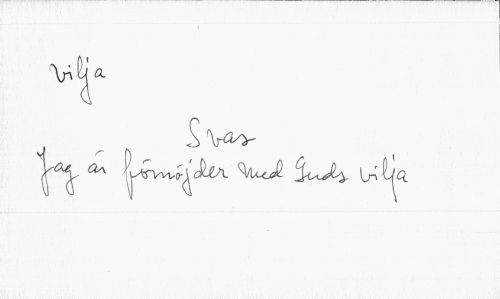 vilja
Svar
Jag är förnöjder med Guds vilja